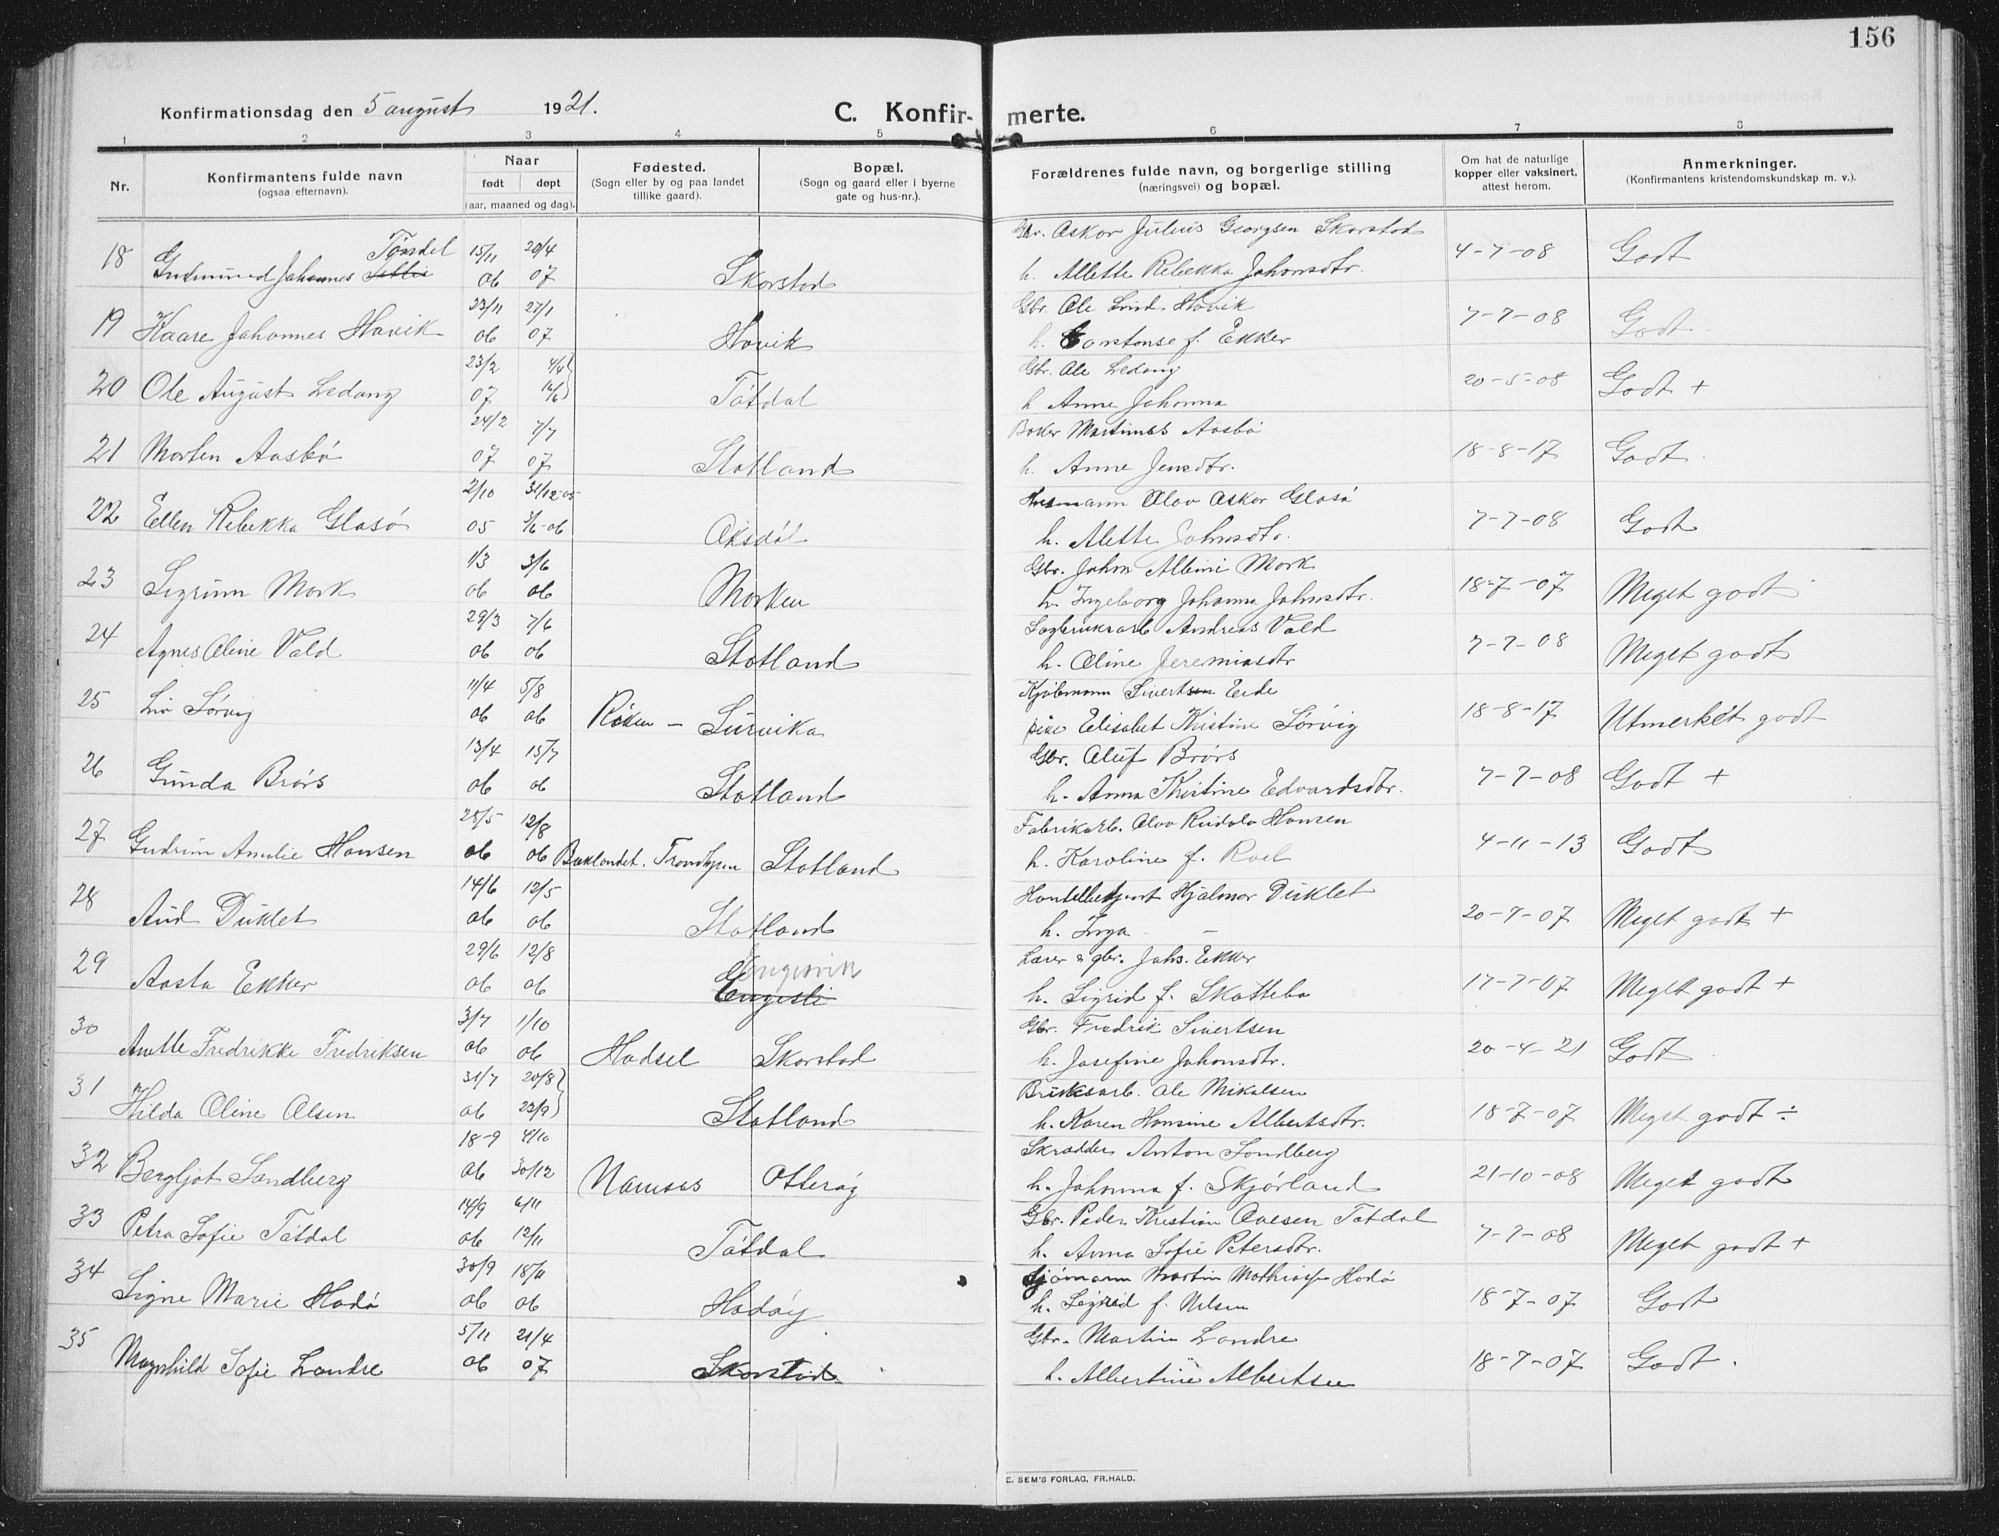 156
Konfirmationsdag den 5 august 1921.
C. Konfirmerte.
1 2 3 4 5 6 7 8
Nr.
Konfirmantens fulde navn
(ogsaa efternavn).
Naar
født døpt
(aar, maaned og dag).
Fødested.
(Sogn eller by og paa landet
tillike gaard).
Bopæl.
(Sogn og gaard eller i byerne
gate og hus-nr.).
Forældrenes fulde navn, og borgerlige stilling
(næringsvei) og bopæl.
Om hat de naturlige
kopper eller vaksinert,
attest herom.
Anmerkninger.
(Konfirmantens kristendomskundskap m. v.).
Tøndel 15/11 20/4 Gbr. Askor Julius Georgsen Skorstad
18 Gudmund Johannes 06 07 Skorstad h. Alette Rebekka Johansdtr. 4-7-08 Godt
23/11 27/1 Gbr. Ole Lund Hovik
19 Kaare Johannes Hovik 06 07 Hovik h. f. Ekker 7-7-08 Godt
23/2 4/4 Gbr. Ole Ledang
20 Ole August Ledang 07 Tøtdal h Anne Johanna 20-5-08 Godt +
24/2 7/7 Martinus Aasbø
21 Morten Aasbø 07 07 Statland h. Anne Jensdtr. 18-8-17 Godt
2/10 31/12-05 Husmann Olav Oskar Glasø
22 Ellen Rebekka Glasø 05 06 h. Alette Johnsdtr. 7-7-08 Godt
1/3 3/6 Gbr. Johan Albin Mork
23 Sigrunn Mork 06 06 Morken h. Ingeborg Johanna Johnsdtr. 18-7-07 Meget godt
29/3 7/6 Sagbruksarb Andreas Vold
24 Agnes Oline Vold 06 06 Statland h. Oline Jeremiasdtr 7-7-08 Meget godt
11/4 5/8 Kjøbmann Sivertsen Eide
25 Liv Sørvig 06 06 Røken — Survika pike Elisabet Kristine Sørvig 18-8-17 Utmerket godt
13/4 15/7 Gbr. Oluf Brørs
26 Gunda Brørs 06 06 Statland h. Anna Kristine Edvardsdtr. 7-7-08 Godt +
28/5 12/8 Fabrikarb. Olav Rudolv Hansen
27 Gudrun Amalie Hansen 06 06 Baklandet. Trondhjem Statland h. Karoline f. Roel 4-11-13 Godt
14/6 12/5 Handelbetjent Hjalmar Duklet
28 Aud Duklet 06 06 Statland h. Inga — 20-7-07 Meget godt +
29/6 12/8 Engesvik Lærer & gbr. Johs. Ekker
29 Aasta Ekker 06 06 Engesli h. Sigrid f. Skatteba 17-7-07 Meget godt +
3/7 1/10 Gbr. Fredrik Sivertsen
30 Anette Fredrikke Fredriksen 06 06 Hadsel Skorstad h. Josefine Johansdtr. 20-4-21 Godt
31/7 20/8 Bruksarb. Ole Mikalsen
31 Hilda Oline Olsen 06 23/9 Statland h. Karen Hansine Albertsdtr. 18-7-07 Meget godt ÷
18-9 4/10 Skrædder Anton Sandberg
32 Bergljot Sandberg 06 30/12 Namsos Otterøy h. Johanna f. Skjørland 21-10-08 Meget godt
14/9 6/11 Gbr. Peder Kristian Ovesen Tøtdal
33 Petra Sofie Tøtdal 06 12/11 Tøtdal h. Anna Sofie Petersdtr. 7-7-08 Meget godt +
30/9 18/11 Sjømann Martin Mathias Hodø
34 Signe Marie Hodø 06 06 Hodøy h. Sigrid f. Nilsen 18-7-07 Godt
5/11 21/4 Gbr. Martin Landre
35 Magnhild Sofie Landre 06 07 Skorstad h. Albertine Albertsen 18-7-07 Godt.
E. SEM'S FORLAG, FR.HALD.